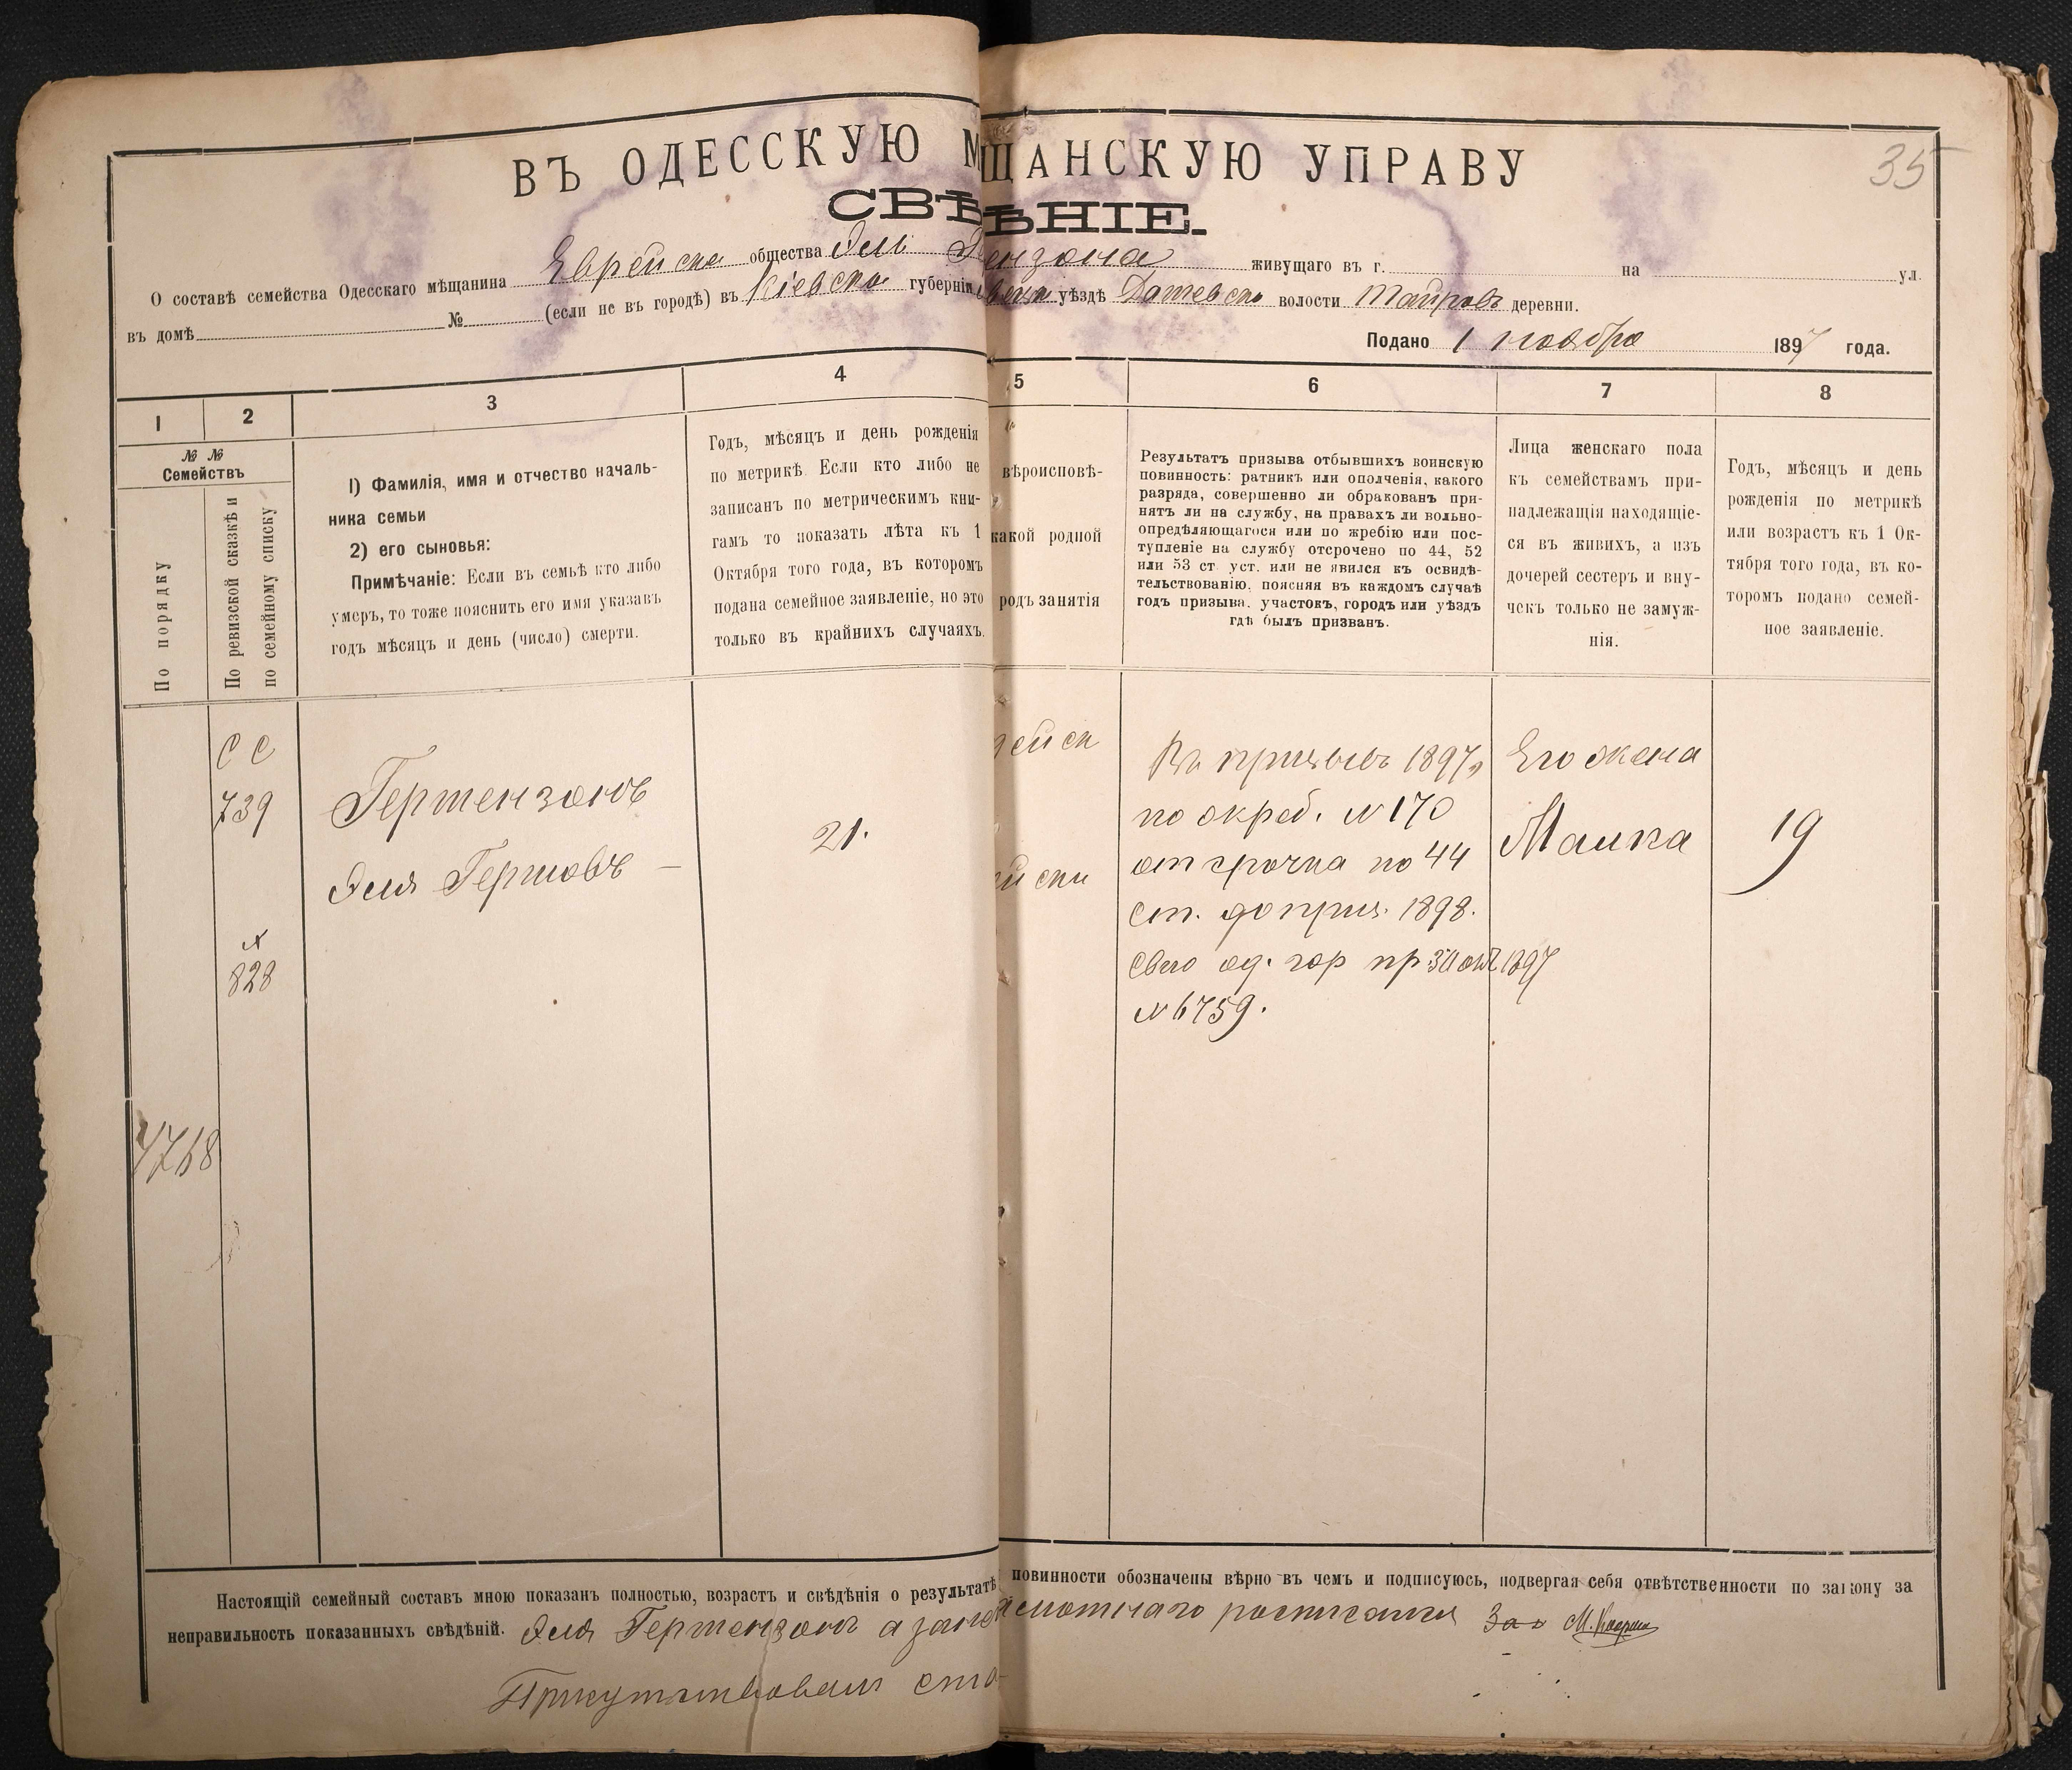 35
ВЪ ОДЕССКУЮ М ЩАНСКУЮ УПРАВУ
СВѢ ѢНІЕ.
О составѣ семейства Одесскаго мѣщанина Еврейска общества Эли ензона живущаго въ г. на ул.
въ домѣ № (если не въ городѣ) въ Кіевско губерніи уѣздѣ волости деревни.
Подано 1 ноября 1897 года.
1 2 3 4 5 6 7 8
№ № Семействъ
По порядку
По ревизской сказкѣ и по семейному списку
1) Фамилія, имя и отчество началь-
ника семьи
2) его сыновья:
Примѣчаніе: Если въ семьѣ кто либо
умеръ, то тоже пояснить его имя указавъ
годъ мѣсяцъ и день (число) смерти.
Годъ, мѣсяцъ и день рожденія
по метрикѣ. Если кто либо не
записанъ по метрическимъ кни-
гамъ то показать лѣта къ 1
Октября того года, въ которомъ
подана семейное заявленіе, но это
только въ крайнихъ случаяхъ.
вѣроисповѣ-
какой родной
родъ занятія
Результатъ призыва отбывшихъ воинскую
повинность: ратникъ или ополченія, какого
разряда, совершенно ли обракованъ при-
нятъ ли на службу, на правахъ ли вольно-
опредѣляющагося или по жребію или пос-
тупленіе на службу отсрочено по 44, 52
или 53 ст. уст. или не явился къ освидѣ-
тельствованію. поясняя въ каждомъ случаѣ
годъ призыва. участокъ, городъ или уѣздъ
гдѣ былъ призванъ.
Лица женскаго пола
къ семействамъ при-
надлежащія находящіе-
ся въ живихъ, а изъ
дочерей сестеръ и вну-
чекъ только не замуж-
нія.
Годъ, мѣсяцъ и день
рожденія по метрикѣ
или возрастъ къ 1 Ок-
тября того года, въ ко-
торомъ подано семей-
ное заявленіе.
С С
739
N
828
4768
Гертензонъ
Эля Гершовъ —
21.
ейск
йски
Въ призывъ 1897
по жреб. N 170
отсрочка по 44
ст. до приз. 1898.
Свид од. гор пр 30 окт 1897
N 6759.
Его жена
Малка
19
Настоящій семейный составъ мною показанъ полностью, возрастъ и свѣдѣнія о результатѣ повинности обозначены вѣрно въ чемъ и подписуюсь, подвергая себя отвѣтственности по закону за
неправильность показанныхъ свѣдѣній. Эля Гертензонъ а за
Присутствовали